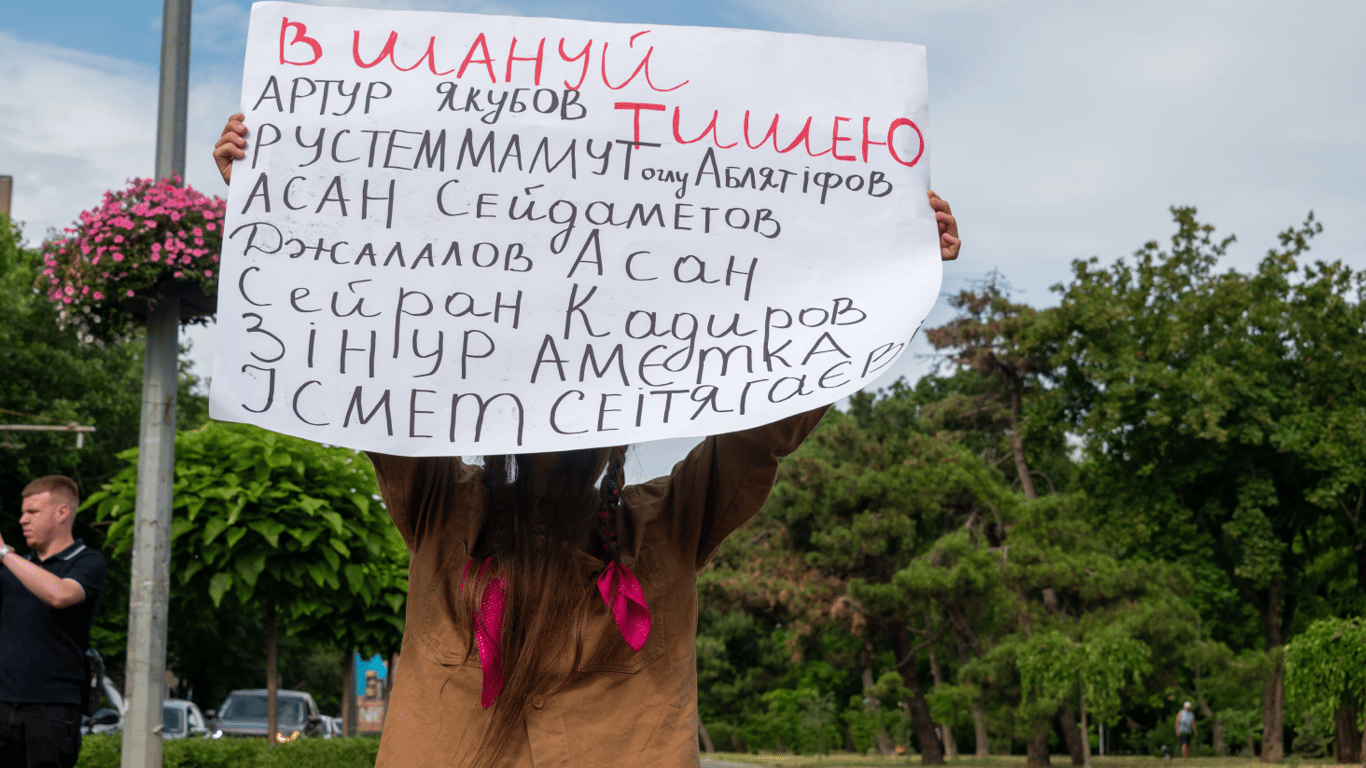 ВШАНУЙ
ТИШЕЮ
АРТУР ЯКУБОВ
РУСТЕМ МАМУТ оглу Аблятіфов
АСАН Сейдаметов
Джалалов Асан
Сейран Кадиров
ЗІНУР АМЄТКА
ІСМЕТ СЕІТЯГАЄВ